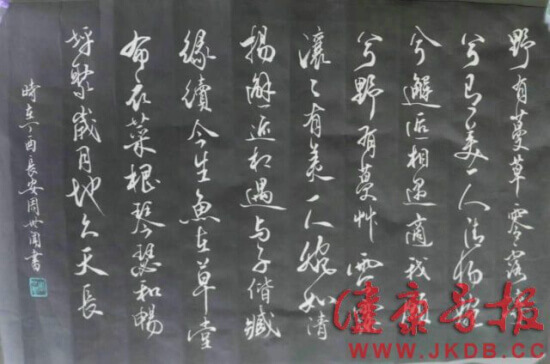 野有蔓草零露
兮有美一人清揚婉
兮邂逅相遇適我願
兮野有蔓草零露
瀼々有美一人婉如清
揚邂逅相遇与子偕臧
緣續今生魚在草堂
布衣菜根琴瑟和暢
聚歲月地久天長
時在丁酉長安周世書
健康导报
WWW.JKDB.CC